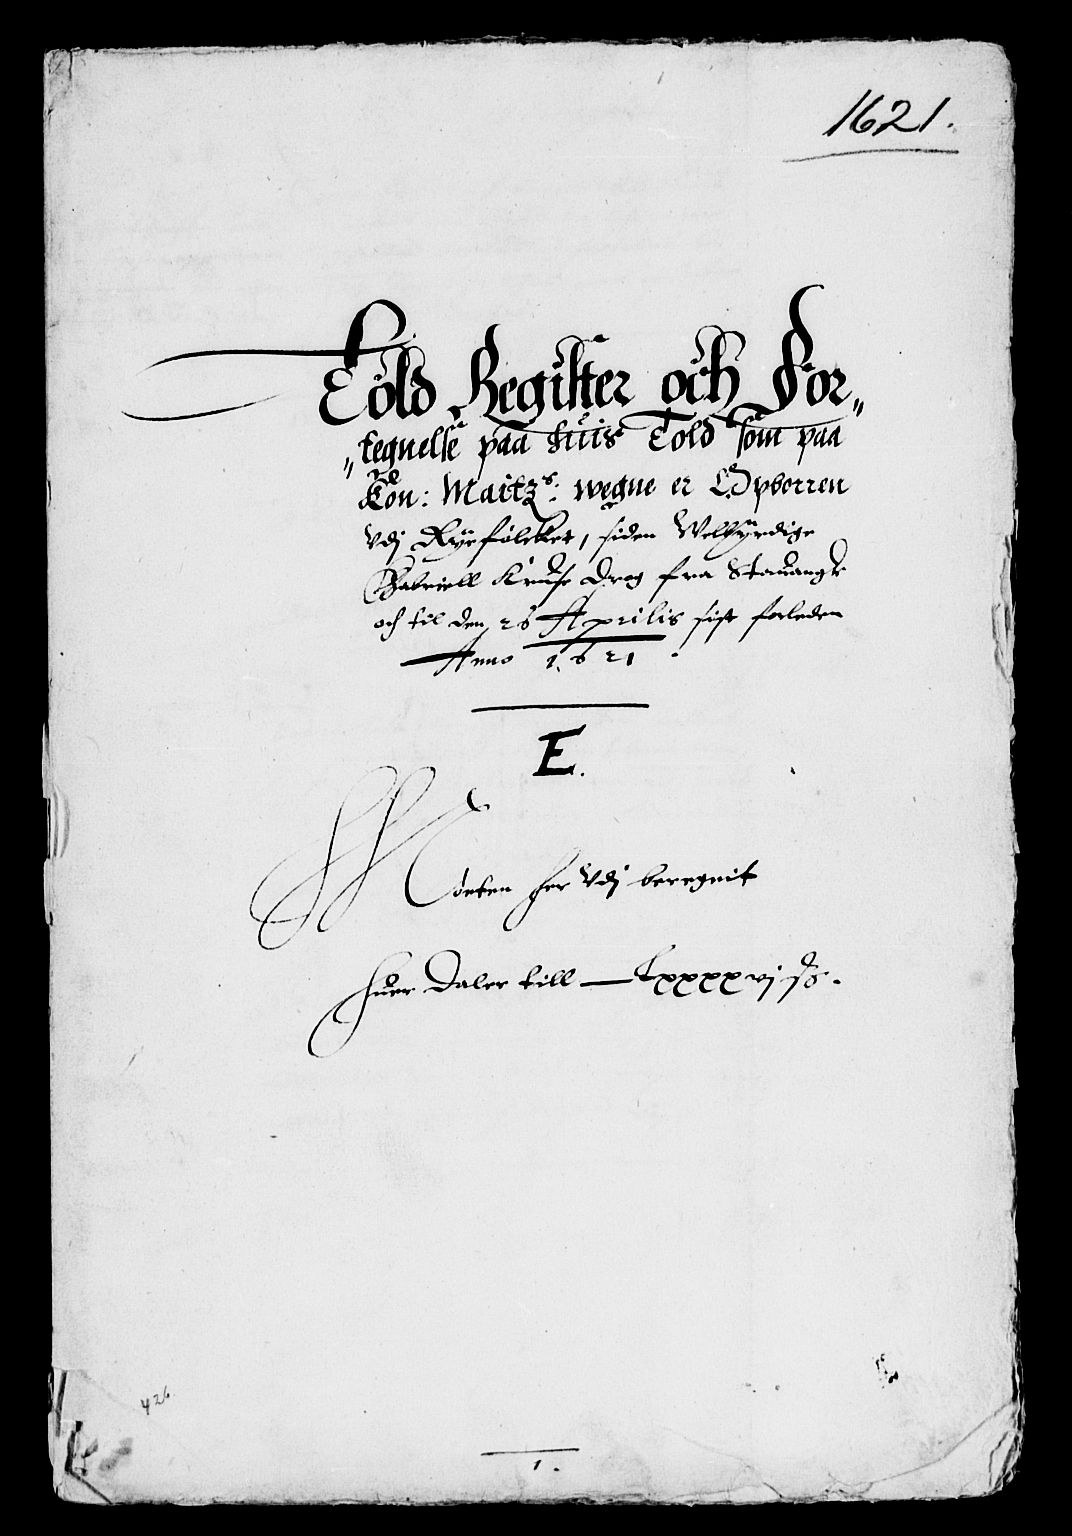 1621.
Told Register och For„
„tegnelse paa huis Told som paa
Kon: Maitz: wegne er Opborren
Vdj Ryefölcket, siden Welbyrdige
Gabriell Kruse Drog fra Stauanger
och til den 26 Aprilis sist forleden
Anno 1621.
E.
Mönten her Vdj beregnit
huer Daler till — Lxxxxvj ß.
426
1.